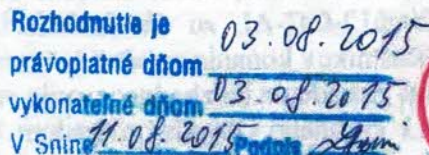 Rozhodnutie je
právoplatné dňom 03.08.2015
vykonateľné dňom 03.08.2015
V Snine 11.08.2015 Podpis